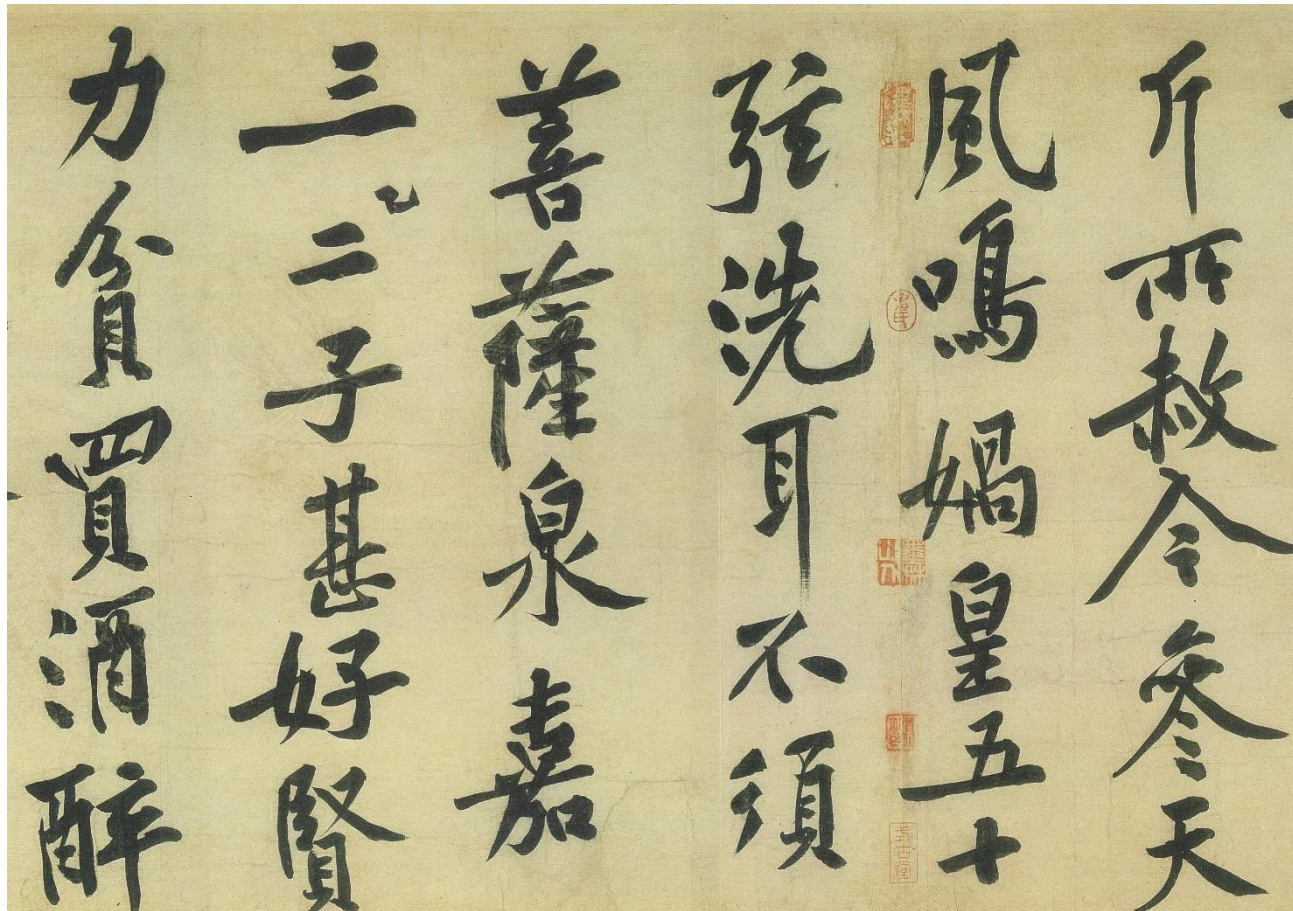 斤所赦今參天
風鳴媧皇五十
式古堂
弦洗耳不須
菩薩泉嘉
三二子甚好賢
力貧買酒醉